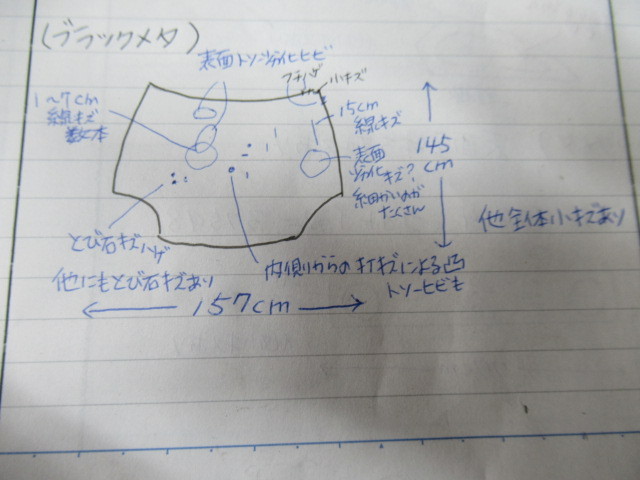 (ブラックメタ)
表面トソー劣化ヒビ
フチハゲ 小キズ
1〜7cm
線キズ
数本
15cm
線キズ
145
cm
表面
劣化キズ?
細かいのが
たくさん
他全体小キズあり
とび石キズハゲ
他にもとび石キズあり
内側からの打キズによる凸
トソーヒビも
157cm